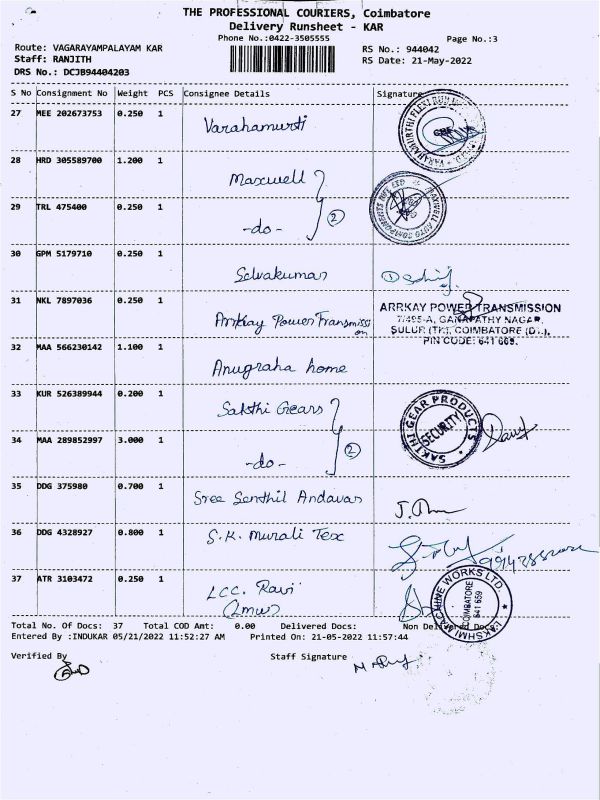 THE PROFESSIONAL COURIERS, Coimbatore
Delivery Runsheet - KAR
Phone No.:0422-3505555
Page No.:3
Route: VAGARAYAMPALAYAM KAR
RS No.: 944042
Staff: RANJITH
RS Date: 21-May-2022
DRS No.: DCJB94404203
S No Consignment No Weight PCS Consignee Details Signature
27 MEE 202673753 0.250 1 Varahamurti
28 HRD 305589700 1.200 1 Maxwell
29 TRL 475400 0.250 1 -do- 2
30 GPM 5179710 0.250 1 Selvakumar
31 NKL 7897036 0.250 1 Arrkay Power Transmission
ARRKAY POWER TRANSMISSION
7/495-A, GANAPATHY NAGAR,
SULUR (TK), COIMBATORE (DT.),
PIN CODE: 641 669.
32 MAA 566230142 1.100 1 Anugraha home
33 KUR 526389944 0.200 1 Sakthi Gears
SAKTHI GEAR PRODUCTS
SECURITY
34 MAA 289852997 3.000 1 -do- 2
35 DDG 375980 0.700 1 Sree Senthil Andavar
36 DDG 4328927 0.800 1 S.K. Murali Tex
37 ATR 3103472 0.250 1 LCC. Ravi
(Lmw)
LAKSHMI MACHINE WORKS LTD.
COIMBATORE
641 659
Total No. Of Docs: 37 Total COD Amt: 0.00 Delivered Docs: Non Delivered Docs:
Entered By :INDUKAR 05/21/2022 11:52:27 AM Printed On: 21-05-2022 11:57:44
Verified By
Staff Signature